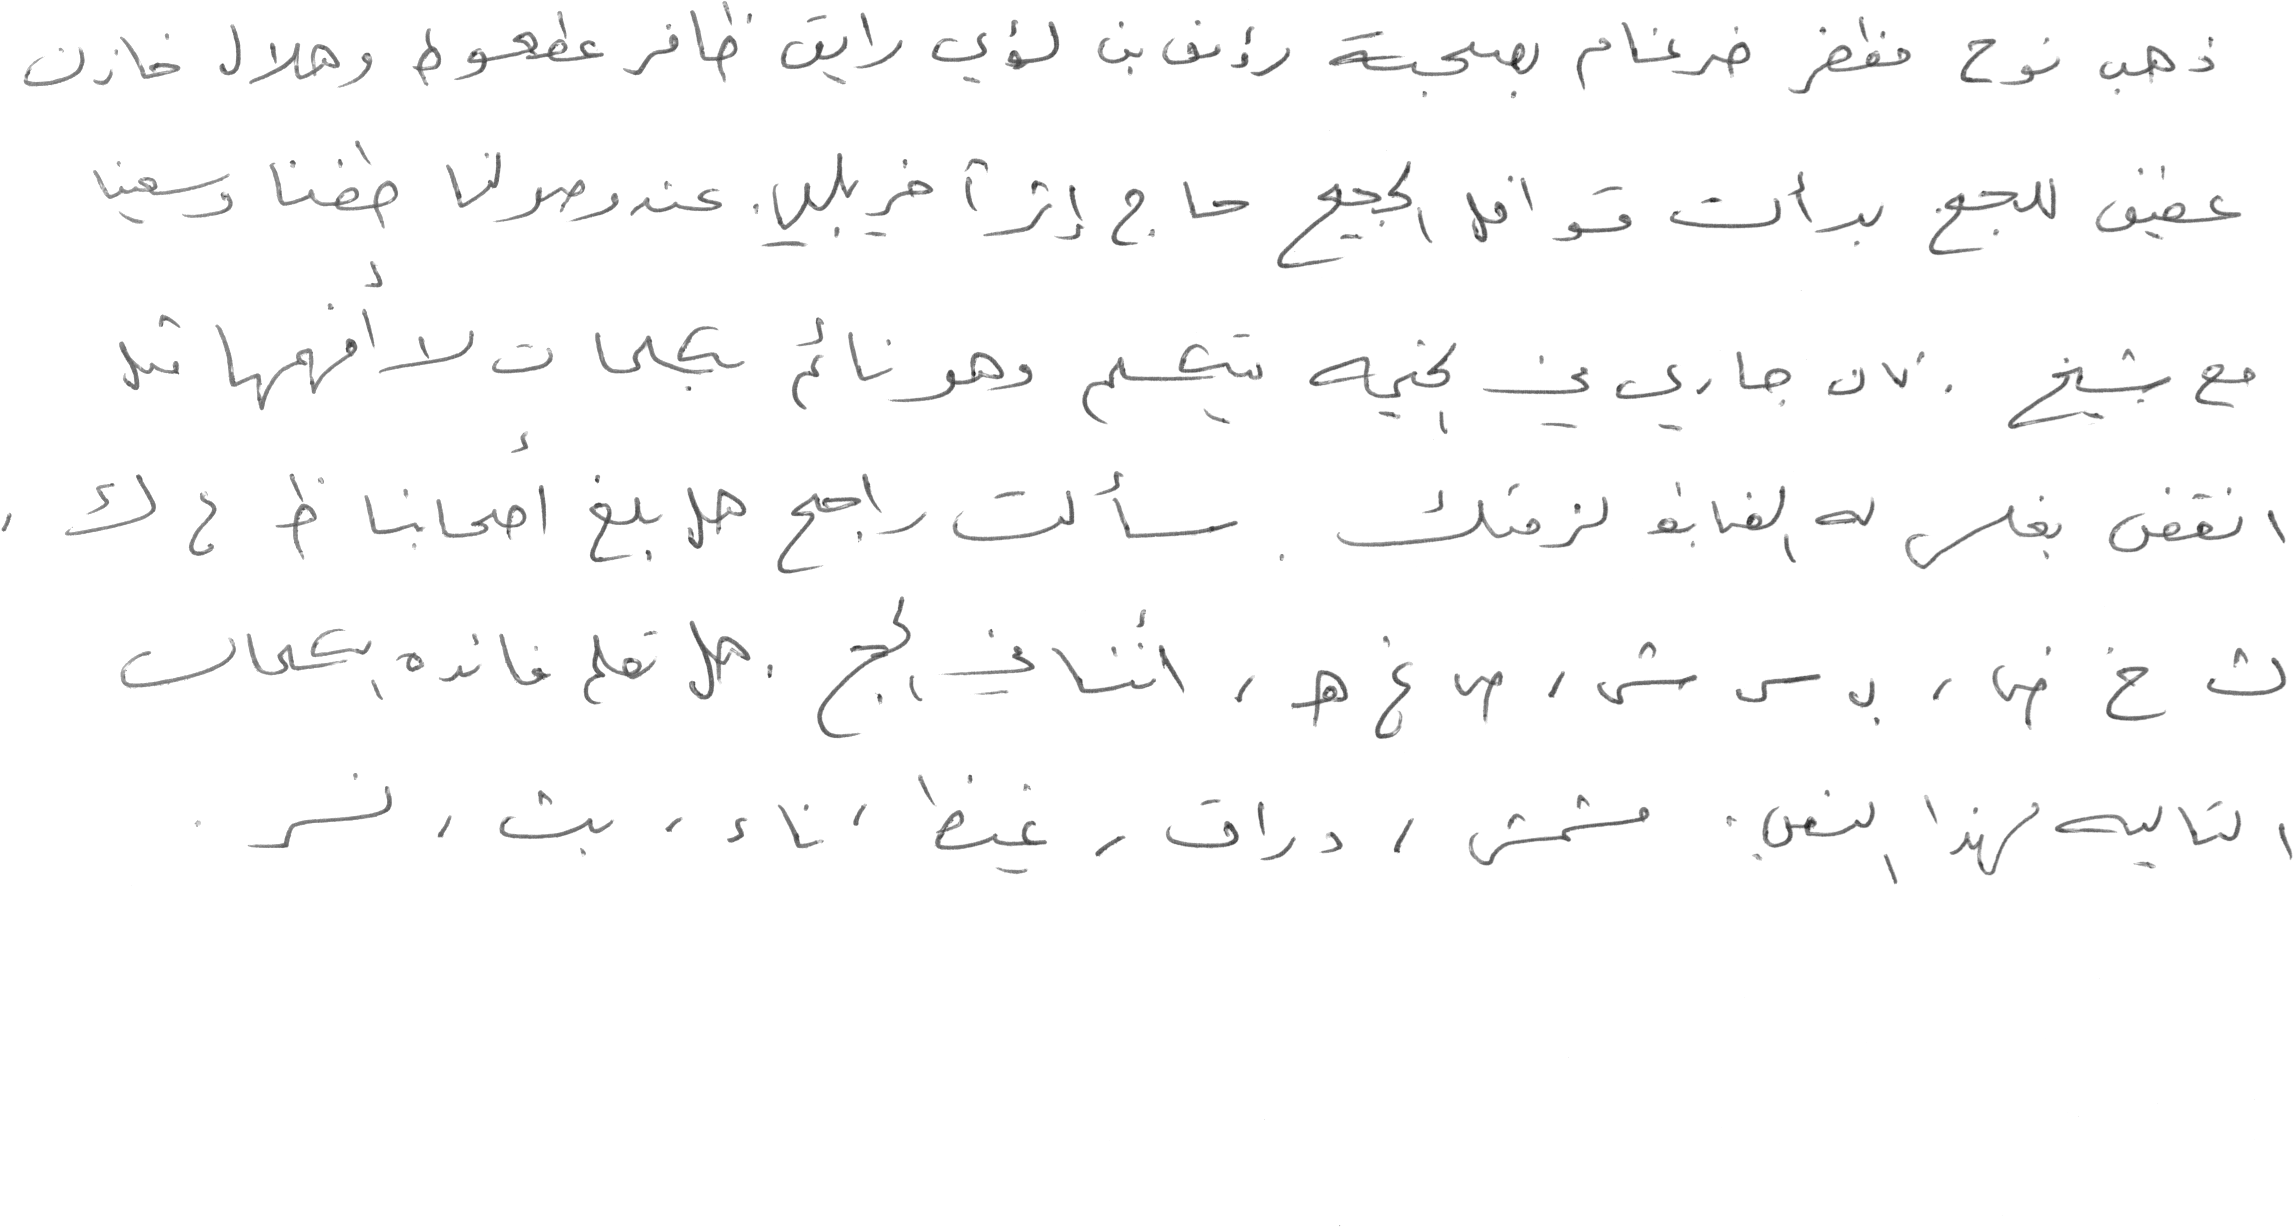 ذهب نوح مظفر ضرغام بصحبة رؤوف بن لؤي رايق ظافر عطعوط وهلال خازن
عفيف للحج بدأت قوافل الحجيج حاج إثر آخر يلبي. عند وصولنا طفنا وسعينا
مع شيخ. كان جاري في الخيمه يتكلم وهو نائم بكلمات لا أفهمها مثل
انقض بغلس له الفاظ لزمتك. سألت راجح هل بلغ أصحابنا ظ ع ك ،
ث خ ض ، ب س ش ، ص غ ه ، أننا في الحج. هل تعلم فائده الكلمات
التاليه لهذا النص: مشمش ، دراق ، غيظ ، ناء ، بث ، نسر .